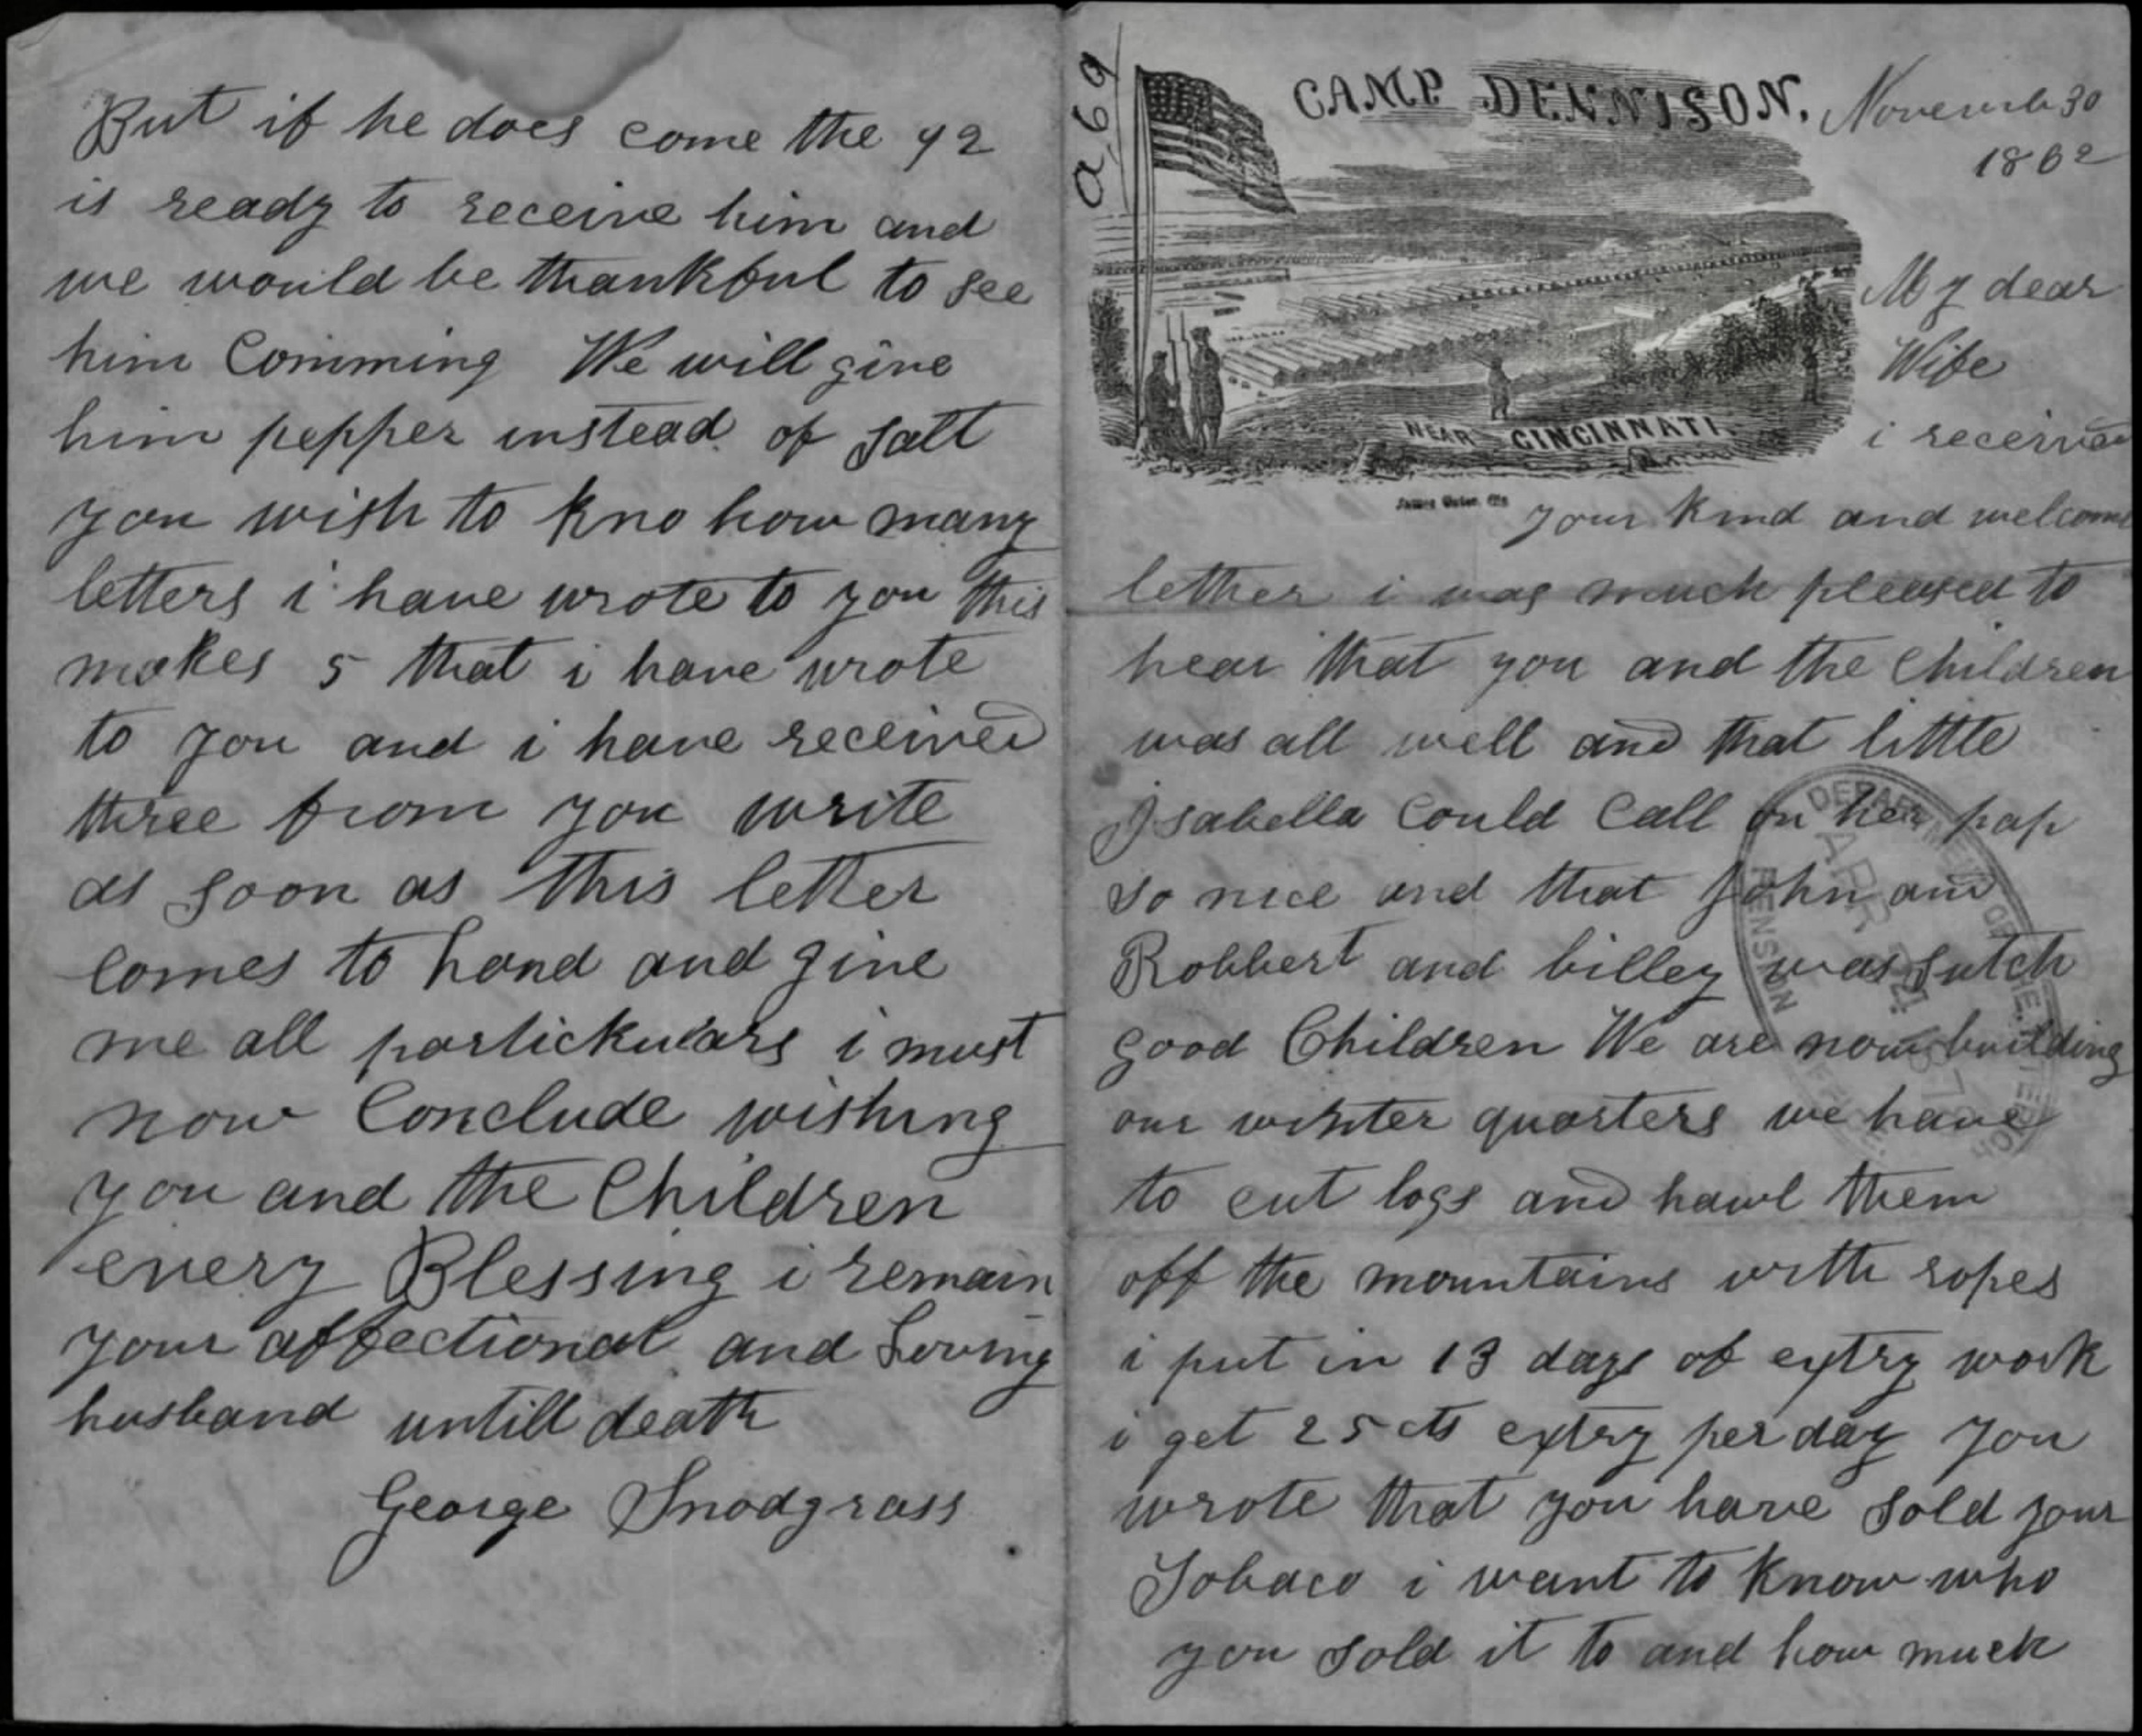 But if he does come the 92
is ready to receive him and
we would be thankful to see
him Comming We will give
him pepper instead of salt
you wish to kno how many
letters i have wrote to you this
makes 5 that i have wrote
to you and i have received
three from you write
as soon as this letter
comes to hand and give
me all partickulars i must
now Conclude wishing
you and the Children
every Blessing i remain
your affectionat and Loving
husband untill death
George Snodgrass
a 69
CAMP DENNISON.
November 30
1862
NEAR CINCINNATI.
My dear
Wife
i received
your kind and welcome
letter i was much pleased to
hear that you and the Children
was all well and that little
Isabella Could Call on her pap
so nice and that John and
Robbert and billey was sutch
good Children We are now building
our winter quarters we have
to cut logs and hawl them
off the mountains with ropes
i put in 13 days of extry work
i get 25 cts extry per day you
wrote that you have sold your
Tobaco i want to know who
you sold it to and how much
DEPARTMENT OF THE INTERIOR
APR
PENSION